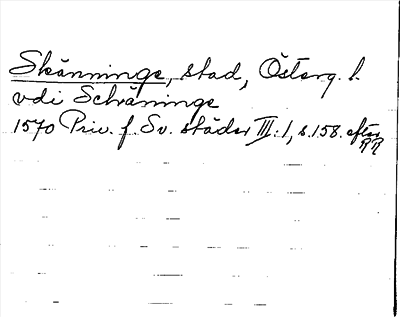 Skänninge, stad, Österg. l.
vdi Schäninge
1570 Priv. f. Sv. städer III:1, s.158. efter
RR